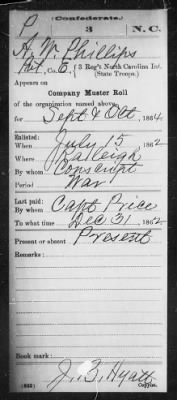 (Confederate.)
P 3 N. C.
A. W. Phillips
Pvt, Co. E, 3 Reg't North Carolina Inf.
(State Troops.)
Appears on
Company Muster Roll
of the organization named above,
for Sept & Oct, 1864
Enlisted:
When July 15, 1862
Where Raleigh
By whom Conscript
Period War
Last paid:
By whom Capt Price
To what time Dec 31, 1862
Present or absent Present
Remarks:
Book mark:
J. B. Hyatt
Copyist.